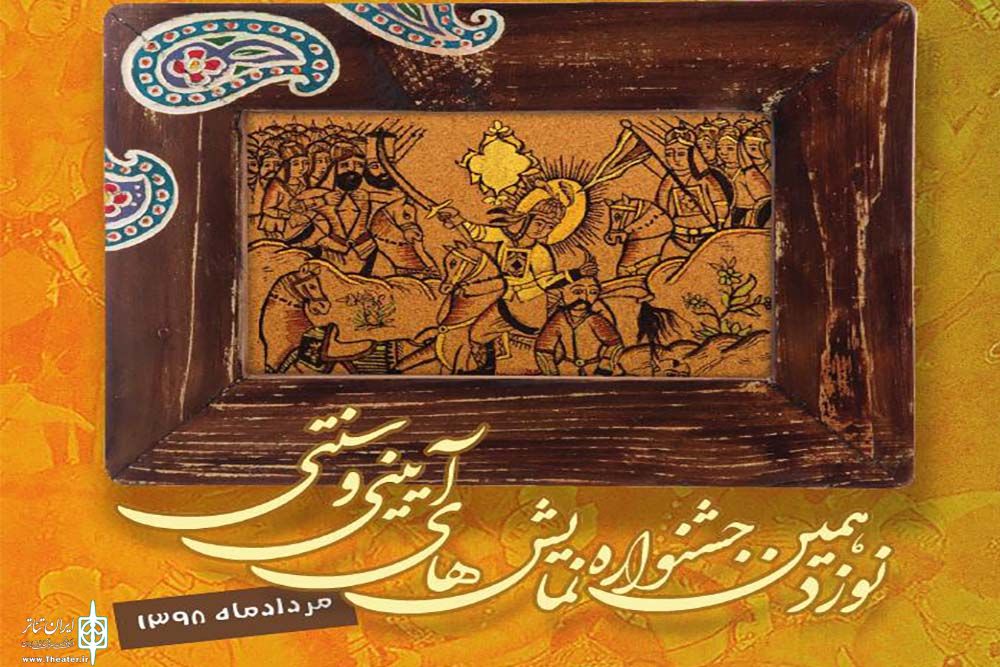 نوزدهمین جشنواره نمایش‌های آیینی و سنتی
مردادماه ۱۳۹۸
ایران تئاتر
www.Theater.ir